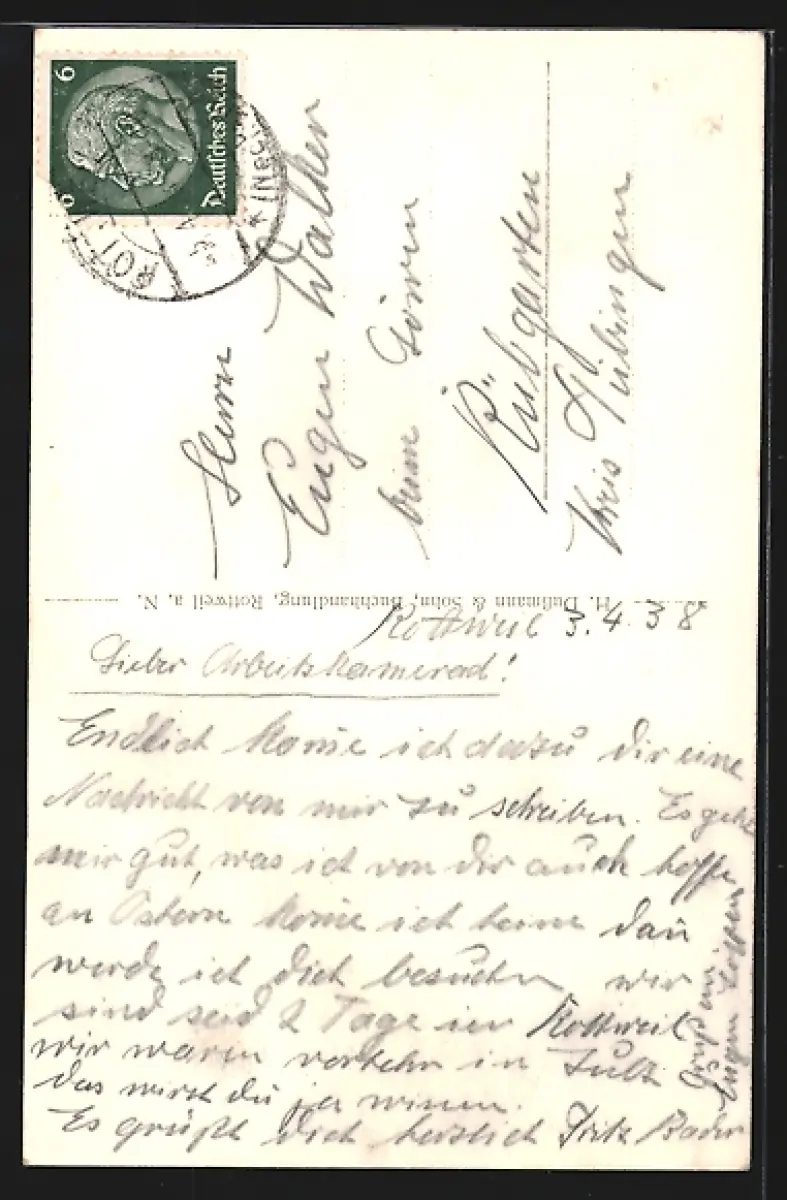 Deutsches Reich
6
6
Herrn
Eugen Walker
beim
Rübgarten
Kreis Tübingen
H. Dußmann & Sohn, Buchhandlung, Rottweil a. N.
Rottweil 3.4.38
Lieber Arbeitskamerad!
Endlich kome ich dazu dir eine
Nachricht von mir zu schreiben. Es geht
mir gut, was ich von dir auch hoffe
an Ostern kome ich heim dan
werde ich dich besuchen wir
sind seid 2 Tage in Rottweil
wir waren vorher in Sulz
das wirst du ja wissen.
Es grüßt dich herzlich Fritz Bader
Grüße mir
Eugen